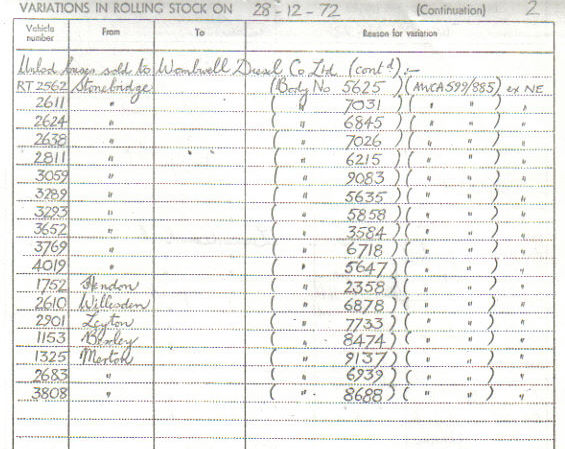 VARIATIONS IN ROLLING STOCK ON 28-12-72 (Continuation) 2
Vehicle number From To Reason for variation
Unlicd buses sold to Wombwell Diesel Co Ltd. (cont'd):-
RT 2562 Stonebridge (Body No 5625) (AWCA 599/885) ex NE
2611 " ( " 7031 ) ( " " ) "
2624 " ( " 6845 ) ( " " ) "
2638 " ( " 7026 ) ( " " ) "
2811 " ( " 6215 ) ( " " ) "
3059 " ( " 9083 ) ( " " ) "
3289 " ( " 5635 ) ( " " ) "
3293 " ( " 5858 ) ( " " ) "
3652 " ( " 3584 ) ( " " ) "
3769 " ( " 6718 ) ( " " ) "
4019 " ( " 5647 ) ( " " ) "
1752 Hendon ( " 2358 ) ( " " ) "
2610 Willesden ( " 6878 ) ( " " ) "
2901 Leyton ( " 7733 ) ( " " ) "
1153 Bexley ( " 8474 ) ( " " ) "
1325 Merton ( " 9137 ) ( " " ) "
2683 " ( " 6939 ) ( " " ) "
3808 " ( " 8688 ) ( " " ) "